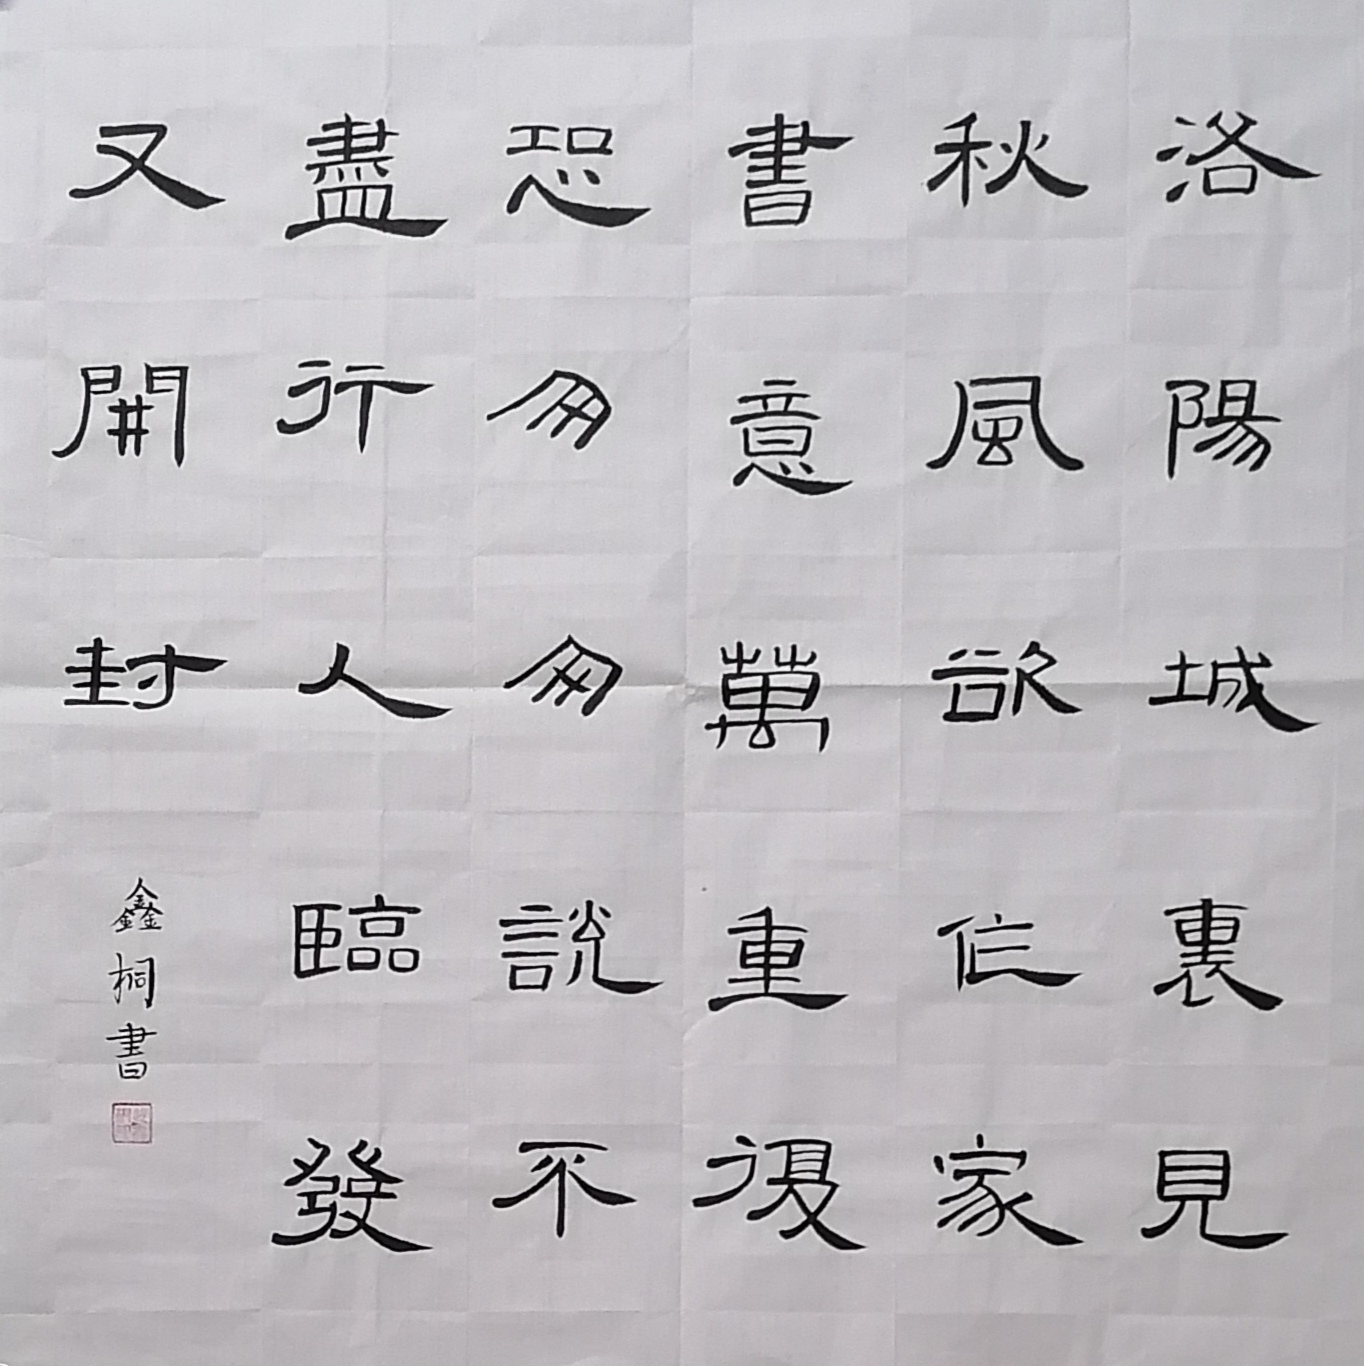 洛陽城裏見
秋風欲作家
書意萬重復
恐匆匆説不
盡行人臨發
又開封
鑫桐書